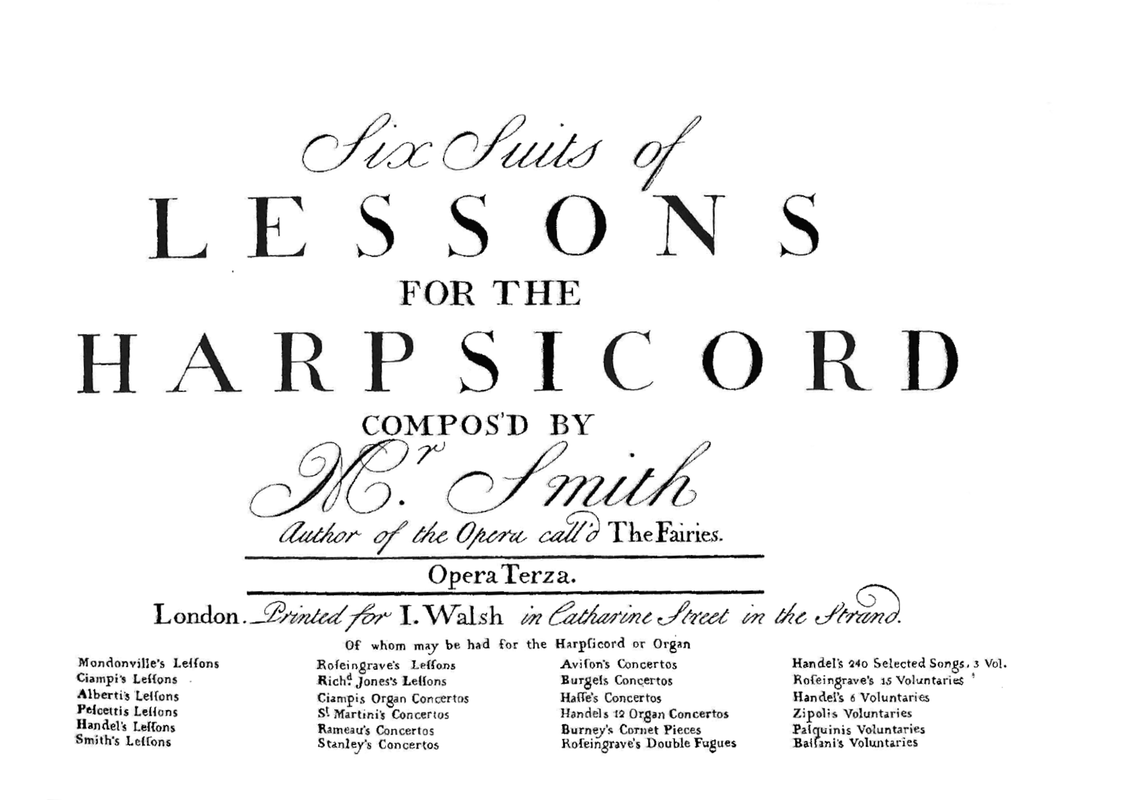 Six Suits of
LESSONS
FOR THE
HARPSICORD
COMPOS'D BY
Mr. Smith
Author of the Opera call'd The Fairies.
Opera Terza.
London. Printed for I. Walsh in Catharine Street in the Strand.
Of whom may be had for the Harpſicord or Organ
Mondonville's Leſſons
Ciampi's Leſſons
Alberti's Leſſons
Peſcettis Leſſons
Handel's Leſſons
Smith's Leſſons
Roſeingrave's Leſſons
Richd. Jones's Leſſons
Ciampis Organ Concertos
St. Martini's Concertos
Rameau's Concertos
Stanley's Concertos
Aviſon's Concertos
Burgeſs Concertos
Haſſe's Concertos
Handels 12 Organ Concertos
Burney's Cornet Pieces
Roſeingrave's Double Fugues
Handel's 240 Selected Songs. 3 Vol.
Roſeingrave's 15 Voluntaries
Handel's 6 Voluntaries
Zipolis Voluntaries
Paſquinis Voluntaries
Baſſani's Voluntaries